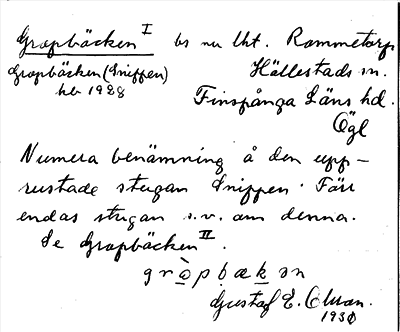 Gropbäcken I bs nu lht. Rammetorp
Gropbäcken (Snippen) Hällestads sn.
hb 1928 Finspånga Läns hd.
Ögl
Numera benämning å den upp-
rustade stugan Snippen. Förr
endas stugan s.v. om denna.
Se Gropbäcken II.
gròpbækən
Gustaf E. Olsson.
1930